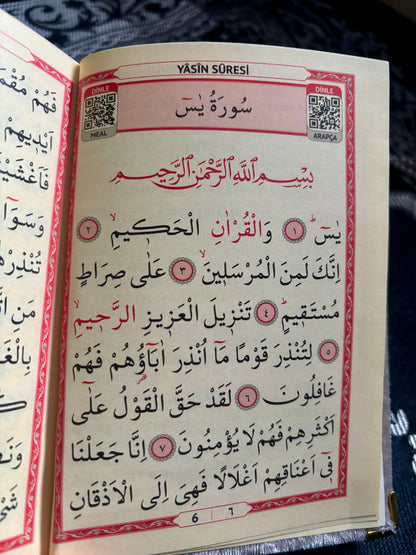 YÂSÎN SÛRESİ
DİNLE
MEAL
سُورَةُ يٰسٓ
DİNLE
ARAPÇA
بِسْمِ اللّٰهِ الرَّحْمٰنِ الرَّحِيمِ
يٰسٓ ۚ ﴿١﴾ وَالْقُرْاٰنِ الْحَكِيمِۙ ﴿٢﴾
اِنَّكَ لَمِنَ الْمُرْسَلِينَۙ ﴿٣﴾ عَلٰى صِرَاطٍ
مُسْتَقِيمٍۜ ﴿٤﴾ تَنْزِيلَ الْعَزِيزِ الرَّحِيمِۙ
﴿٥﴾ لِتُنْذِرَ قَوْمًا مَٓا اُنْذِرَ اٰبَٓاؤُهُمْ فَهُمْ
غَافِلُونَ ﴿٦﴾ لَقَدْ حَقَّ الْقَوْلُ عَلٰٓى
اَكْثَرِهِمْ فَهُمْ لَا يُؤْمِنُونَ ﴿٧﴾ اِنَّا جَعَلْنَا
فِٓى اَعْنَاقِهِمْ اَغْلَالًا فَهِىَ اِلَى الْاَذْقَانِ
6 | ٦
فَهُمْ مُقْمَ
اَيْدِيهِمْ
فَاَغْشَيْ
وَسَوَٓا
تُنْذِرْهُ
مَنِ اتَّ
بِالْغَ